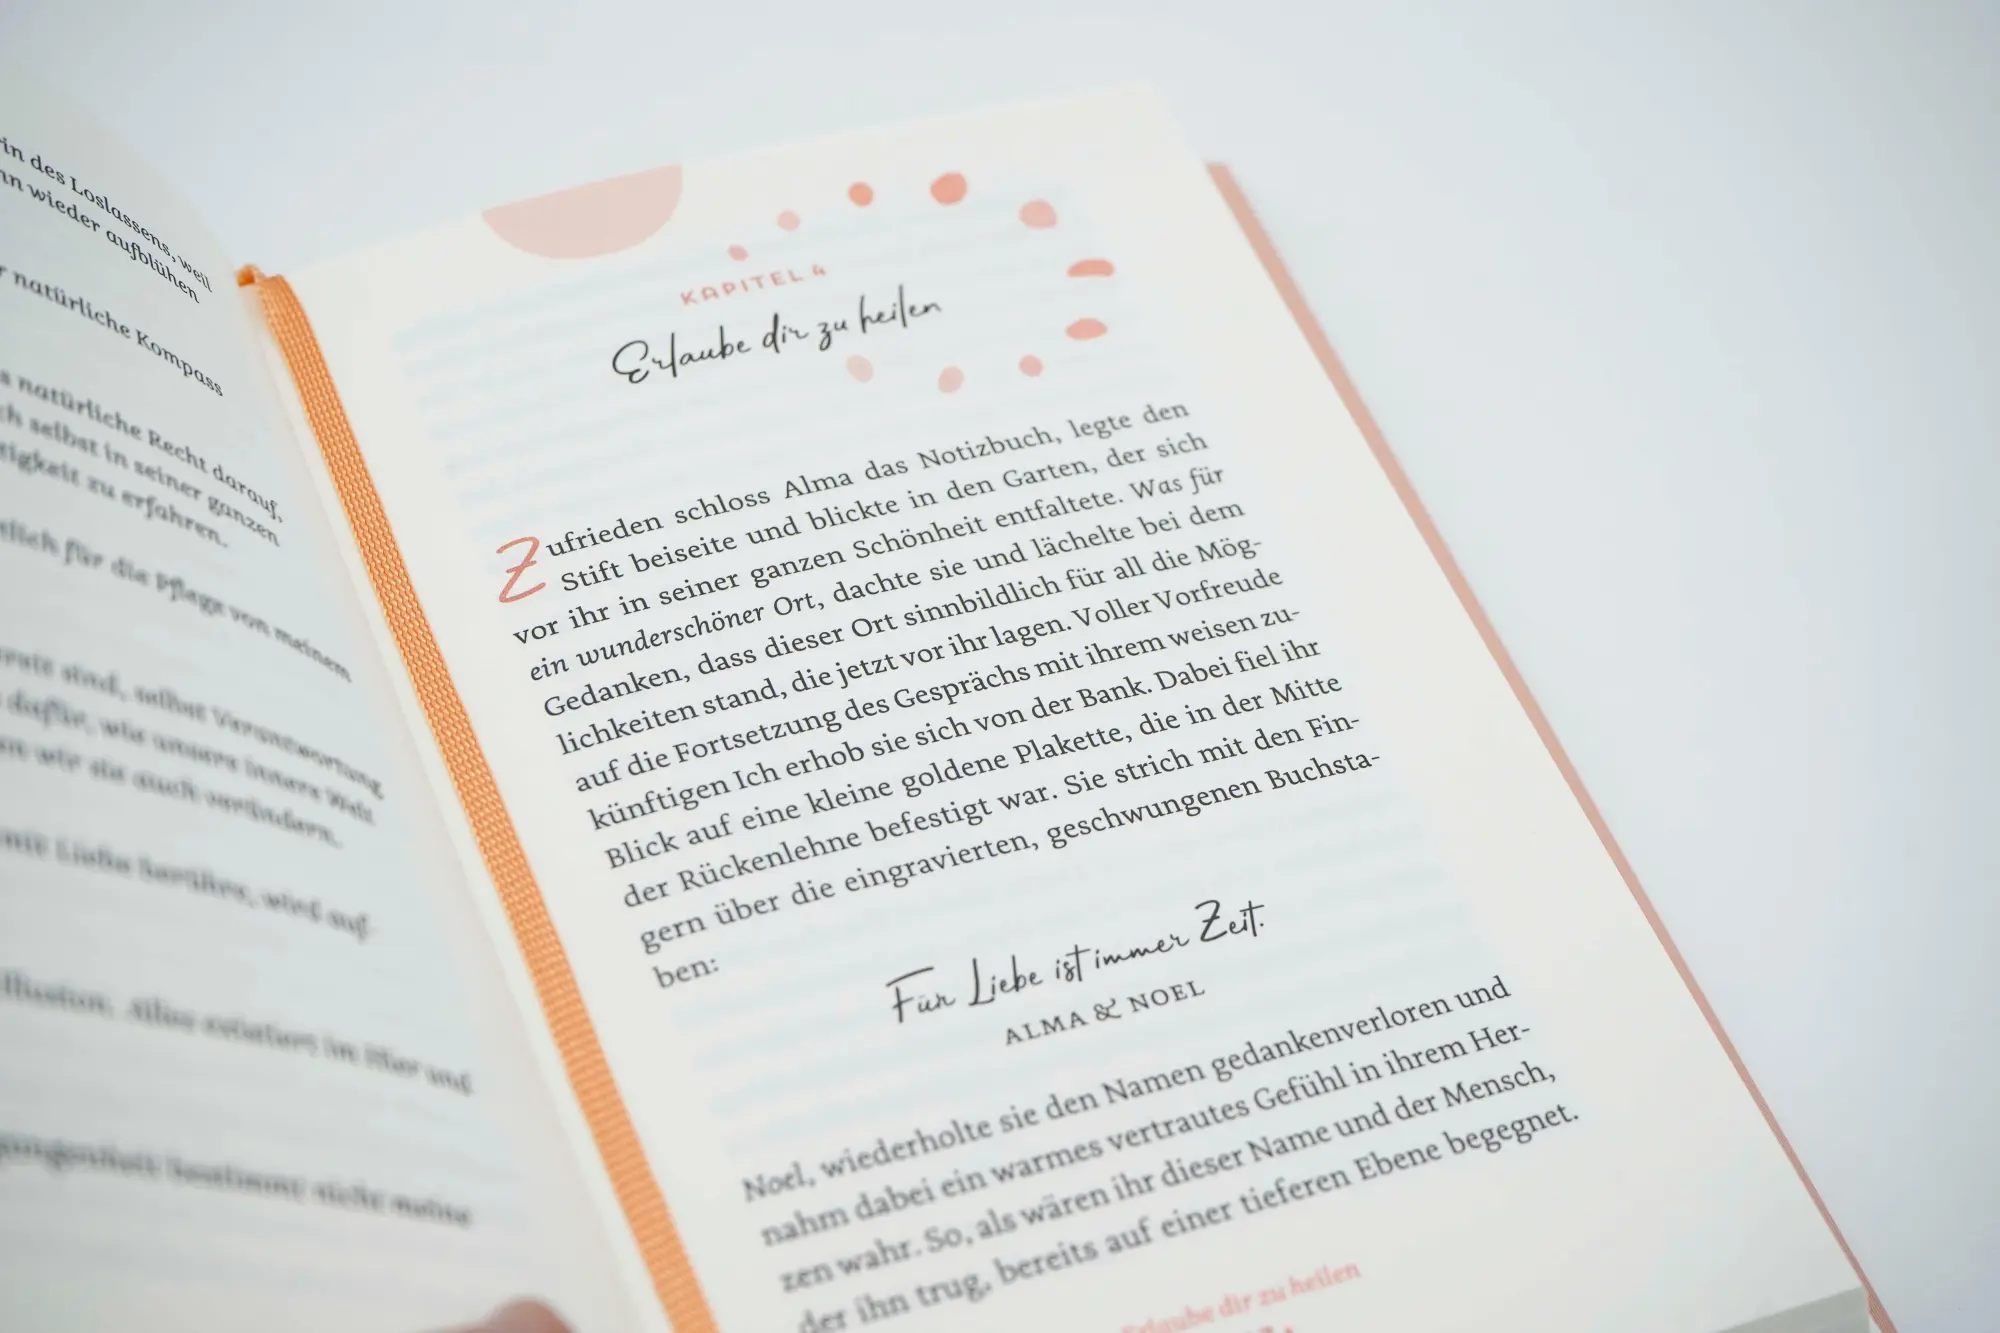 in des Loslassens, weil
nn wieder aufblühen
r natürliche Kompass
s natürliche Recht darauf,
ch selbst in seiner ganzen
tigkeit zu erfahren.
tlich für die Pflege von meinem
sind, selbst Verantwortung
dafür, wie unsere innere Welt
wir sie auch verändern.
mit Liebe berühre, wird auf
Illusion. Alles existiert im Hier und
bestimmt nicht meine
KAPITEL 4
Erlaube dir zu heilen
Zufrieden schloss Alma das Notizbuch, legte den
Stift beiseite und blickte in den Garten, der sich
vor ihr in seiner ganzen Schönheit entfaltete. Was für
ein wunderschöner Ort, dachte sie und lächelte bei dem
Gedanken, dass dieser Ort sinnbildlich für all die Mög-
lichkeiten stand, die jetzt vor ihr lagen. Voller Vorfreude
auf die Fortsetzung des Gesprächs mit ihrem weisen zu-
künftigen Ich erhob sie sich von der Bank. Dabei fiel ihr
Blick auf eine kleine goldene Plakette, die in der Mitte
der Rückenlehne befestigt war. Sie strich mit den Fin-
gern über die eingravierten, geschwungenen Buchsta-
ben:
Für Liebe ist immer Zeit.
ALMA & NOEL
Noel, wiederholte sie den Namen gedankenverloren und
nahm dabei ein warmes vertrautes Gefühl in ihrem Her-
zen wahr. So, als wären ihr dieser Name und der Mensch,
der ihn trug, bereits auf einer tieferen Ebene begegnet.
Erlaube dir zu heilen